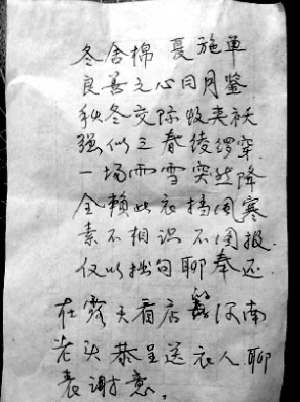 冬舍棉 夏施单
良善之心日月鉴
秋冬交际收夹袄
强似三春绫绸穿
一场雨雪突然降
全赖此衣挡风寒
素不相识不图报
仅以拙句聊奉还
在露天看店 河南
老头恭呈送衣人聊
表谢意。